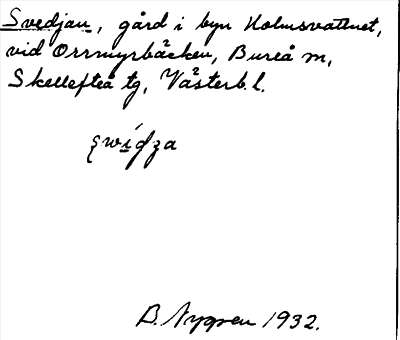 Svedjan, gård i byn Holmsvattnet,
vid Orrmyrbäcken, Bureå m,
Skellefteå tg, Västerb. l.
B. Nygren 1932.